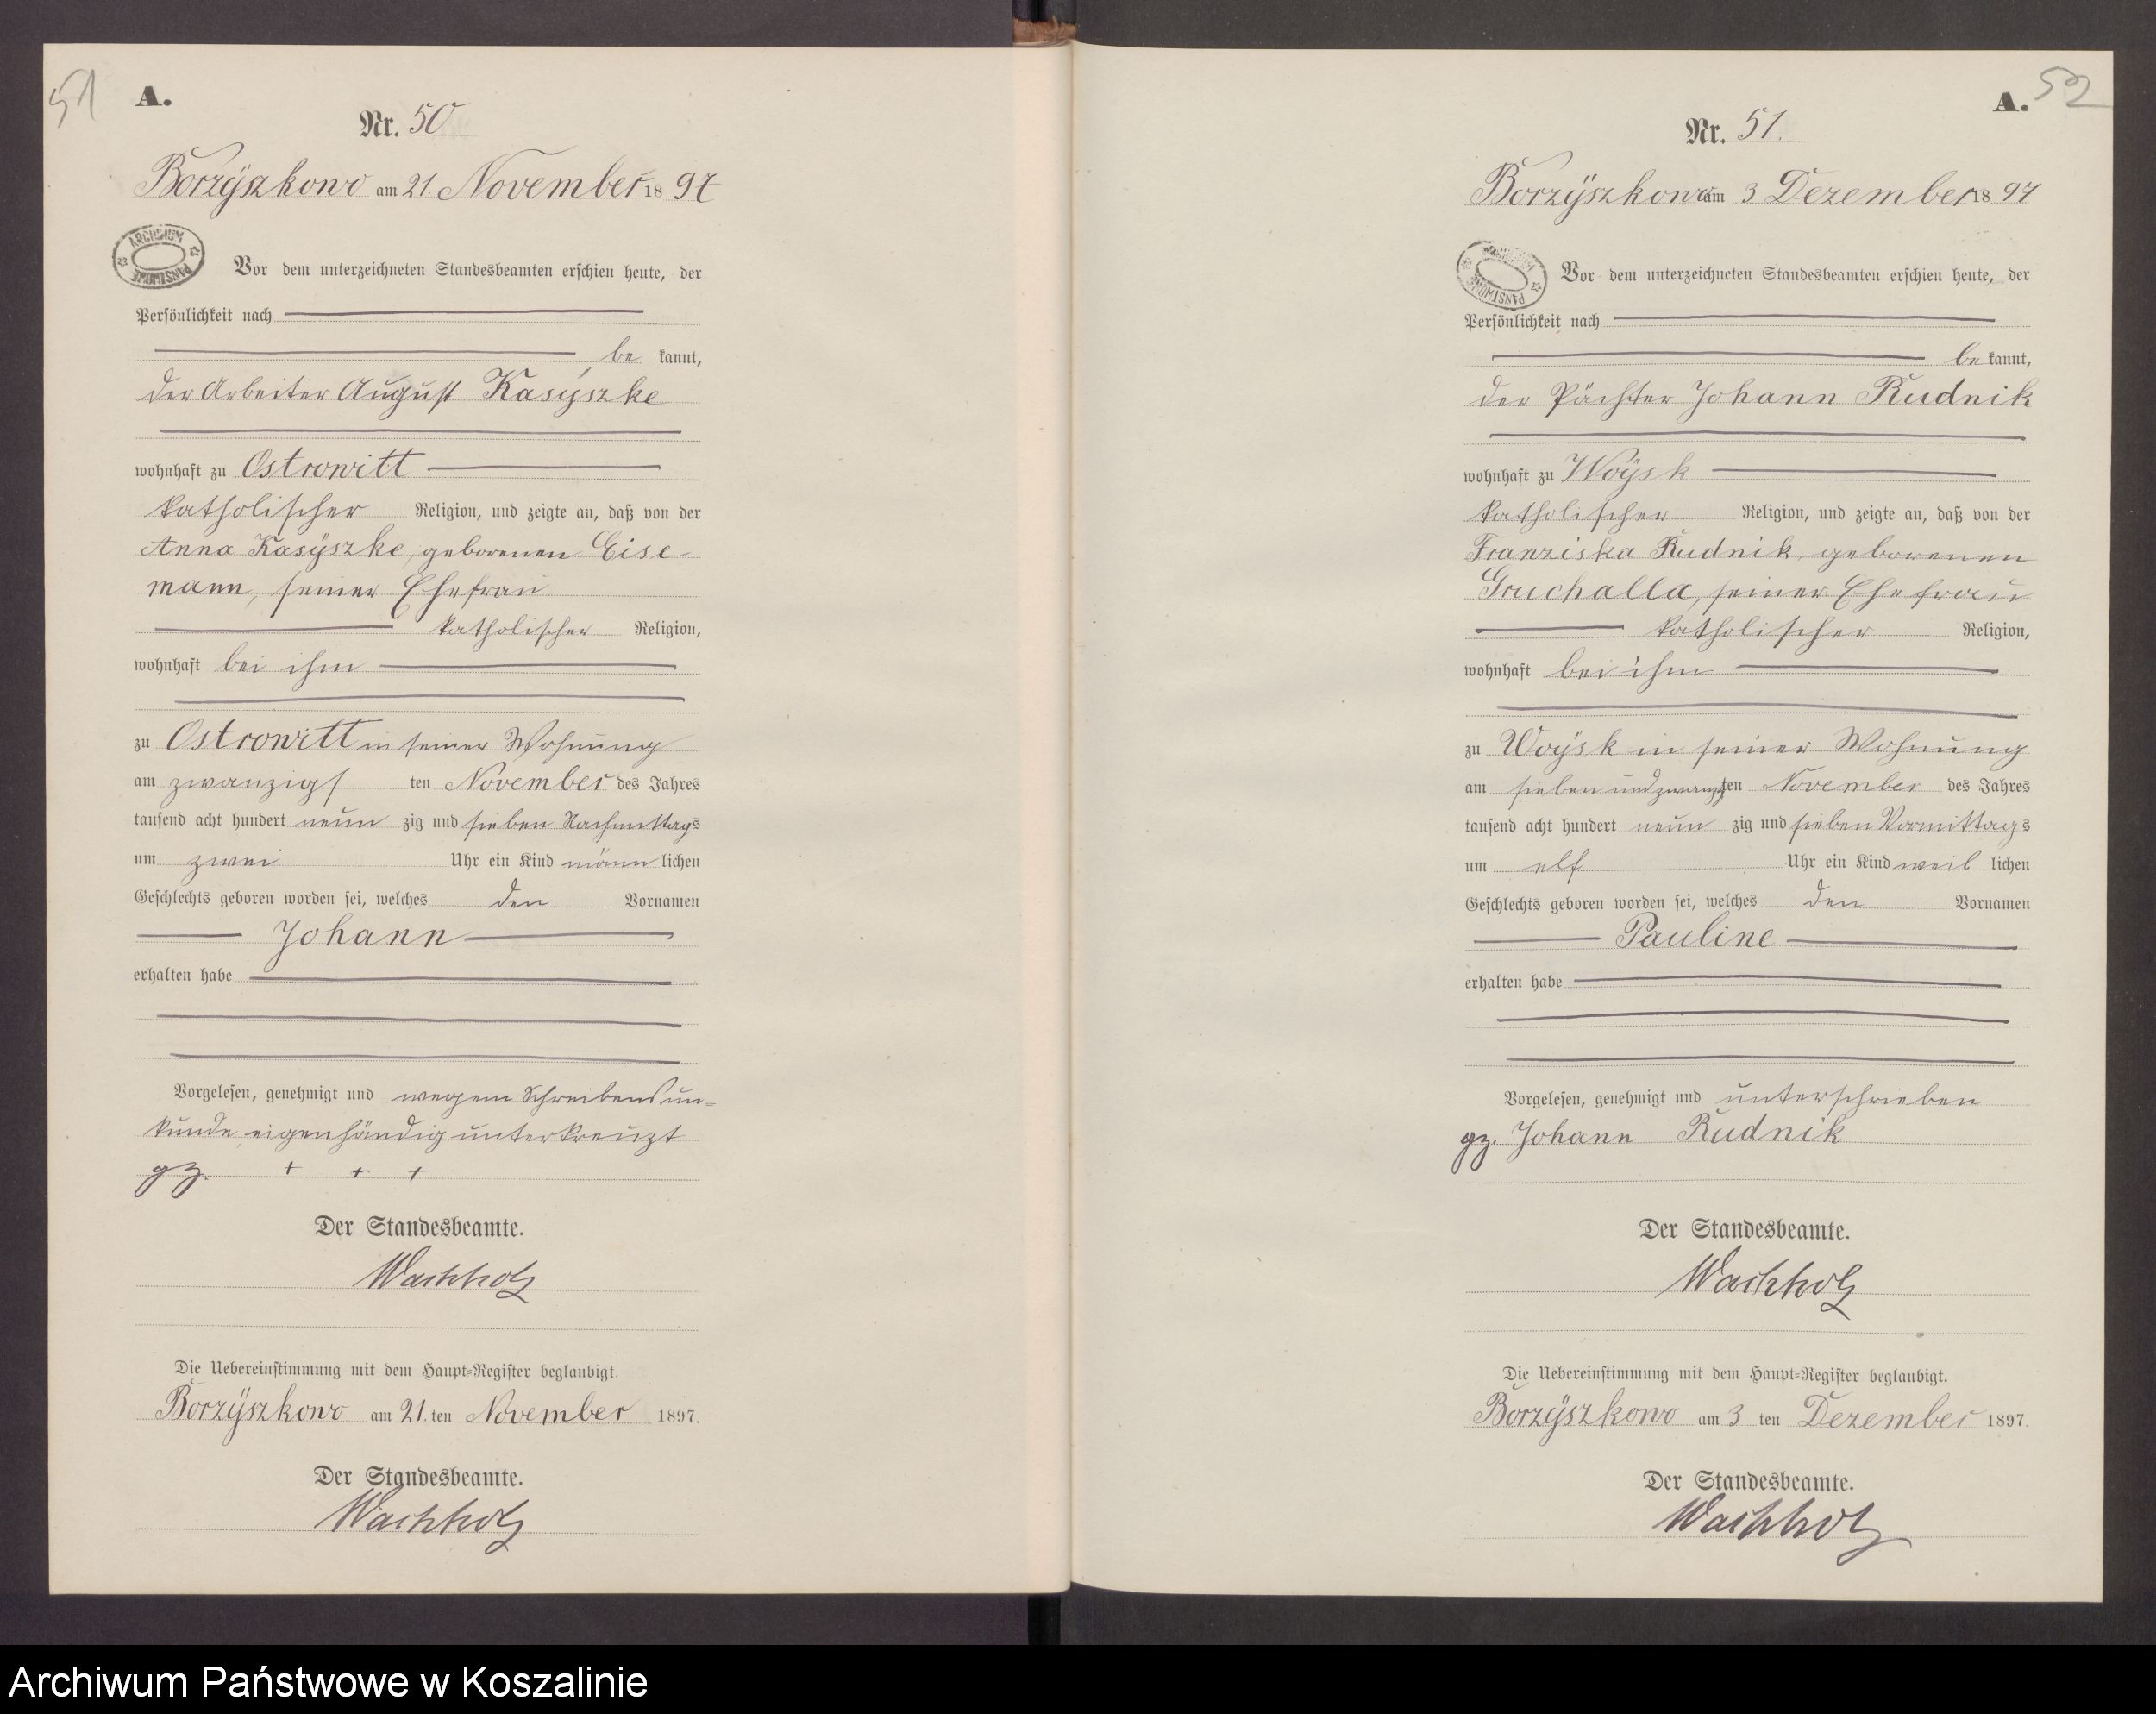 51
A.
Nr. 50
Borzÿszkowo am 21. November 1897
ARCHIWUM PAŃSTWOWE
Vor dem unterzeichneten Standesbeamten erschien heute, der
Persönlichkeit nach
be kannt,
der Arbeiter August Kasÿszke
wohnhaft zu Ostrowitt
katholischer Religion, und zeigte an, daß von der
Anna Kasÿszke, geborenen Eise-
mann, seiner Ehefrau
katholischer Religion,
wohnhaft bei ihm
zu Ostrowitt in seiner Wohnung
am zwanzigs ten November des Jahres
tausend acht hundert neun zig und sieben Nachmittags
um zwei Uhr ein Kind männ lichen
Geschlechts geboren worden sei, welches den Vornamen
Johann
erhalten habe
Vorgelesen, genehmigt und wegen Schreibensun-
kunde eigenhändig unterkreuzt
gz. + + +
Der Standesbeamte.
Wachholz
Die Uebereinstimmung mit dem Haupt-Register beglaubigt.
Borzÿszkowo am 21. ten November 1897.
Der Standesbeamte.
Wachholz
52
A.
Nr. 51.
Borzÿszkowo am 3 Dezember 1897
ARCHIWUM PAŃSTWOWE
Vor dem unterzeichneten Standesbeamten erschien heute, der
Persönlichkeit nach
be kannt,
der Pächter Johann Rudnik
wohnhaft zu Woÿsk
katholischer Religion, und zeigte an, daß von der
Franziska Rudnik, geborenen
Gruchalla, seiner Ehefrau
katholischer Religion,
wohnhaft bei ihm
zu Woÿsk in seiner Wohnung
am sieben und zwanzigsten November des Jahres
tausend acht hundert neun zig und sieben Vormittags
um elf Uhr ein Kind weib lichen
Geschlechts geboren worden sei, welches den Vornamen
Pauline
erhalten habe
Vorgelesen, genehmigt und unterschrieben
gz. Johann Rudnik
Der Standesbeamte.
Wachholz
Die Uebereinstimmung mit dem Haupt-Register beglaubigt.
Borzÿszkowo am 3 ten Dezember 1897.
Der Standesbeamte.
Wachholz
Archiwum Państwowe w Koszalinie